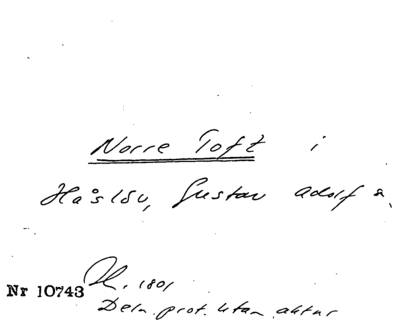 Norre Toft i
Håslöv, Gustav Adolf s.
Nr 10743
H. 1801
Deln. prot. utan aktnr